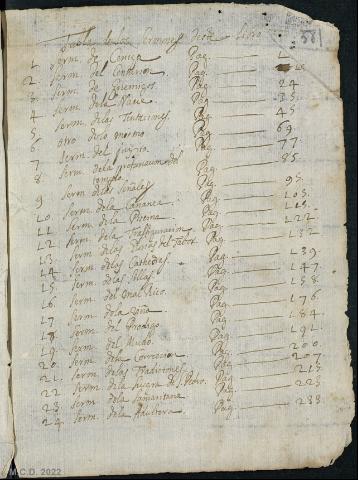 Tabla de los Sermones deste Libro
581
1. Serm. de Ceniça Pag. 1.
2. Serm. del Centurion Pag.
3. Serm. de Enemigos Pag. 24
4. Serm. de la Naue Pag. 35.
5. Serm. de las Tentaciones Pag. 45.
6. otro de lo mismo Pag. 69.
7. Serm. del juizio Pag. 77.
8. Serm. de la profanacion del templo Pag. 85.
9. Serm. de las señales Pag. 95.
10. Serm. de la Cananea Pag. 105.
11. Serm. de la Piscina Pag. 115.
12. Serm. de la Transfiguracion Pag. 122
13. Serm. de las del Tabor Pag. 132
14. Serm. de las Cathedras Pag. 139.
15. Serm. de las Sillas Pag. 147
16. Serm. del Mal Rico. Pag. 158.
17. Serm. de la Viña Pag. 176.
18. Serm. del Prodigo Pag. 184.
19. Serm. del Mudo Pag. 191.
20. Serm. de la Correccion Pag. 200.
21. Serm. de las Tradiciones Pag. 207
22. Serm. de la suegra de S. Pedro. Pag. 215
23. Serm. de la Samaritana Pag. 225
24. Serm. de la Adultera. Pag. 233.
M.C.D. 2022